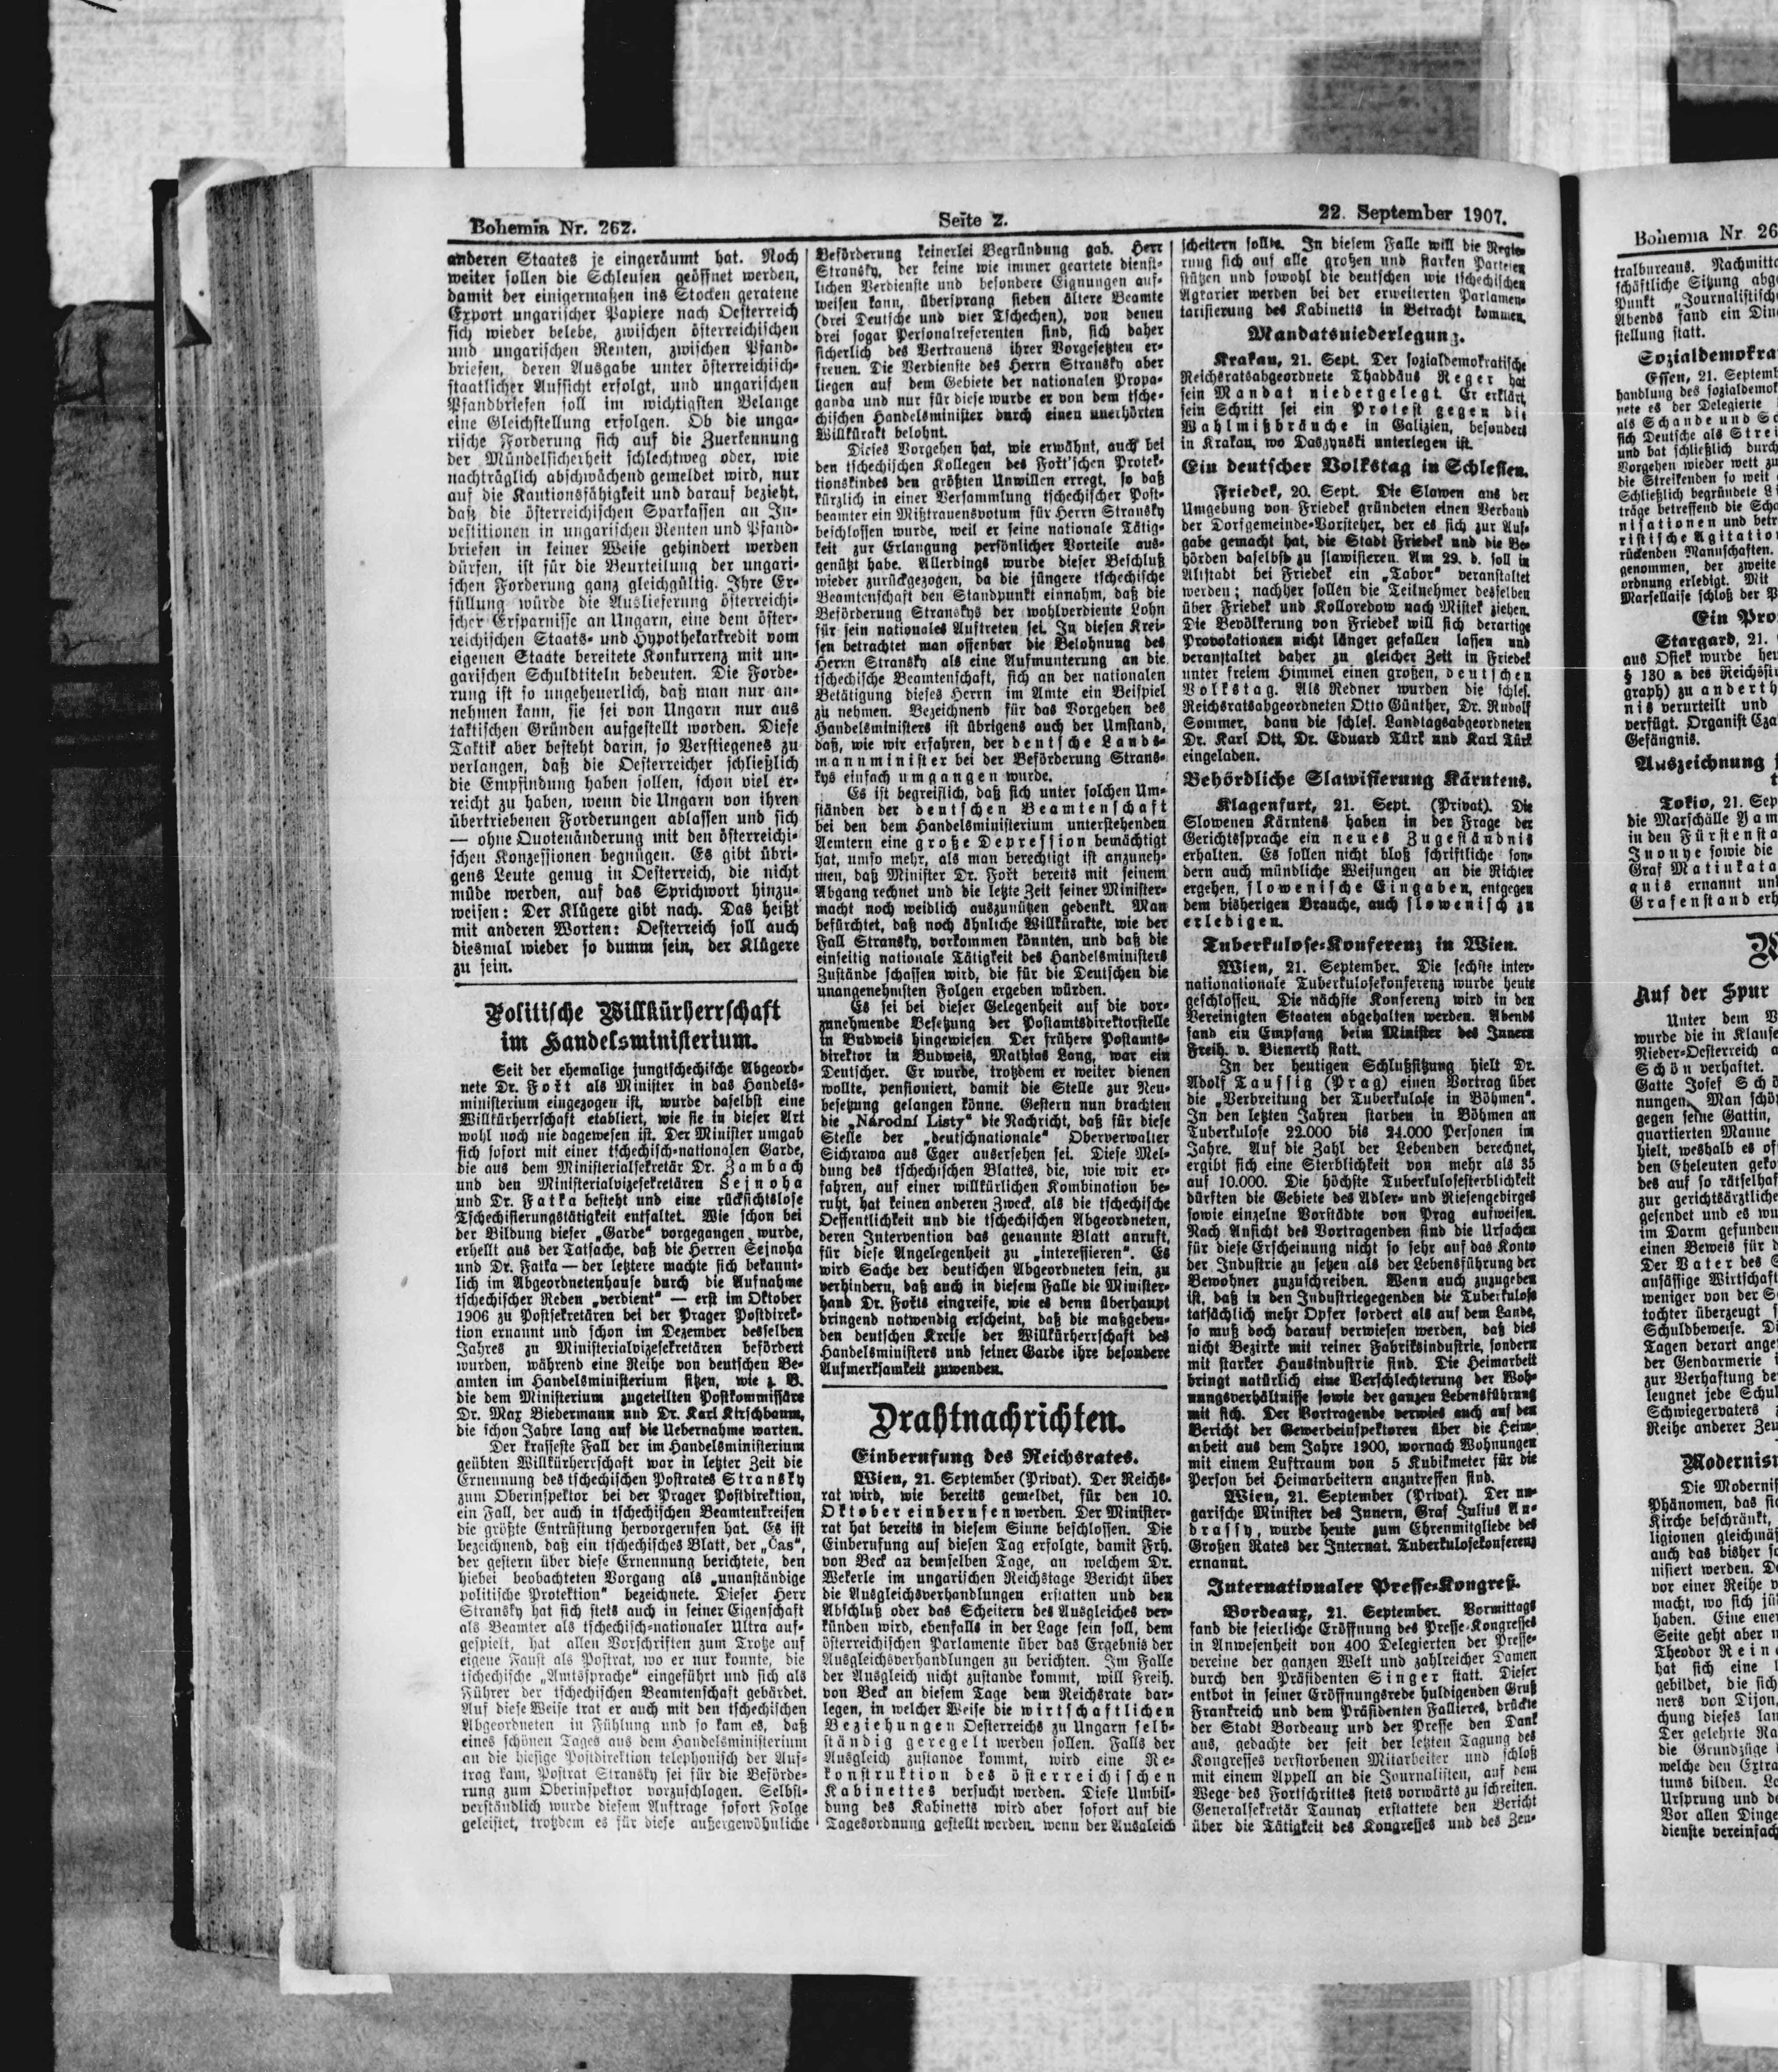 Bohemia Nr. 262.
Seite 2.
22. September 1907.
anderen Staates je eingeräumt hat. Noch
weiter sollen die Schleusen geöffnet werden,
damit der einigermaßen ins Stocken geratene
Export ungarischer Papiere nach Oesterreich
sich wieder belebe, zwischen österreichischen
und ungarischen Renten, zwischen Pfand-
briefen, deren Ausgabe unter österreichisch-
staatlicher Aufsicht erfolgt, und ungarischen
Pfandbriefen soll im wichtigsten Belange
eine Gleichstellung erfolgen. Ob die unga-
rische Forderung sich auf die Zuerkennung
der Mündelsicherheit schlechtweg oder, wie
nachträglich abschwächend gemeldet wird, nur
auf die Kautionsfähigkeit und darauf bezieht,
daß die österreichischen Sparkassen an In-
vestitionen in ungarischen Renten und Pfand-
briefen in keiner Weise gehindert werden
dürfen, ist für die Beurteilung der ungari-
schen Forderung ganz gleichgültig. Ihre Er-
füllung würde die Auslieferung österreichi-
scher Ersparnisse an Ungarn, eine dem öster-
reichischen Staats- und Hypothekarkredit vom
eigenen Staate bereitete Konkurrenz mit un-
garischen Schuldtiteln bedeuten. Die Forde-
rung ist so ungeheuerlich, daß man nur an-
nehmen kann, sie sei von Ungarn nur aus
taktischen Gründen aufgestellt worden. Diese
Taktik aber besteht darin, so Verstiegenes zu
verlangen, daß die Oesterreicher schließlich
die Empfindung haben sollen, schon viel er-
reicht zu haben, wenn die Ungarn von ihren
übertriebenen Forderungen ablassen und sich
— ohne Quotenänderung mit den österreichi-
schen Konzessionen begnügen. Es gibt übri-
gens Leute genug in Oesterreich, die nicht
müde werden, auf das Sprichwort hinzu-
weisen: Der Klügere gibt nach. Das heißt
mit anderen Worten: Oesterreich soll auch
diesmal wieder so dumm sein, der Klügere
zu sein.
Politische Willkürherrschaft
im Handelsministerium.
Seit der ehemalige jungtschechische Abgeord-
nete Dr. Fořt als Minister in das Handels-
ministerium eingezogen ist, wurde daselbst eine
Willkürherrschaft etabliert, wie sie in dieser Art
wohl noch nie dagewesen ist. Der Minister umgab
sich sofort mit einer tschechisch-nationalen Garde,
die aus dem Ministerialsekretär Dr. Zambach
und den Ministerialvizesekretären Sejnoha
und Dr. Fatka besteht und eine rücksichtslose
Tschechisierungstätigkeit entfaltet. Wie schon bei
der Bildung dieser „Garde“ vorgegangen wurde,
erhellt aus der Tatsache, daß die Herren Sejnoha
und Dr. Fatka — der letztere machte sich bekannt-
lich im Abgeordnetenhause durch die Aufnahme
tschechischer Reden „verdient“ — erst im Oktober
1906 zu Postsekretären bei der Prager Postdirek-
tion ernannt und schon im Dezember desselben
Jahres zu Ministerialvizesekretären befördert
wurden, während eine Reihe von deutschen Be-
amten im Handelsministerium sitzen, wie z. B.
die dem Ministerium zugeteilten Postkommissäre
Dr. Max Biedermann und Dr. Karl Kirschbaum,
die schon Jahre lang auf die Uebernahme warten.
Der krasseste Fall der im Handelsministerium
geübten Willkürherrschaft war in letzter Zeit die
Ernennung des tschechischen Postrates Stransky
zum Oberinspektor bei der Prager Postdirektion,
ein Fall, der auch in tschechischen Beamtenkreisen
die größte Entrüstung hervorgerufen hat. Es ist
bezeichnend, daß ein tschechisches Blatt, der „Čas“,
der gestern über diese Ernennung berichtete, den
hiebei beobachteten Vorgang als „unanständige
politische Protektion“ bezeichnete. Dieser Herr
Stransky hat sich stets auch in seiner Eigenschaft
als Beamter als tschechisch-nationaler Ultra auf-
gespielt, hat allen Vorschriften zum Trotze auf
eigene Faust als Postrat, wo er nur konnte, die
tschechische „Amtssprache“ eingeführt und sich als
Führer der tschechischen Beamtenschaft gebärdet.
Auf diese Weise trat er auch mit den tschechischen
Abgeordneten in Fühlung und so kam es, daß
eines schönen Tages aus dem Handelsministerium
an die hiesige Postdirektion telephonisch der Auf-
trag kam, Postrat Stransky sei für die Beförde-
rung zum Oberinspektor vorzuschlagen. Selbst-
verständlich wurde diesem Auftrage sofort Folge
geleistet, trotzdem es für diese außergewöhnliche
Beförderung keinerlei Begründung gab. Herr
Stransky, der keine wie immer geartete dienst-
lichen Verdienste und besondere Eignungen auf-
weisen kann, übersprang sieben ältere Beamte
(drei Deutsche und vier Tschechen), von denen
drei sogar Personalreferenten sind, sich daher
sicherlich des Vertrauens ihrer Vorgesetzten er-
freuen. Die Verdienste des Herrn Stransky aber
liegen auf dem Gebiete der nationalen Propa-
ganda und nur für diese wurde er von dem tsche-
chischen Handelsminister durch einen unerhörten
Willkürakt belohnt.
Dieses Vorgehen hat, wie erwähnt, auch bei
den tschechischen Kollegen des Fořt'schen Protek-
tionskindes den größten Unwillen erregt, so daß
kürzlich in einer Versammlung tschechischer Post-
beamter ein Mißtrauensvotum für Herrn Stransky
beschlossen wurde, weil er seine nationale Tätig-
keit zur Erlangung persönlicher Vorteile aus-
genützt habe. Allerdings wurde dieser Beschluß
wieder zurückgezogen, da die jüngere tschechische
Beamtenschaft den Standpunkt einnahm, daß die
Beförderung Stranskys der wohlverdiente Lohn
für sein nationales Auftreten sei. In diesen Krei-
sen betrachtet man offenbar die Belohnung des
Herrn Stransky als eine Aufmunterung an die
tschechische Beamtenschaft, sich an der nationalen
Betätigung dieses Herrn im Amte ein Beispiel
zu nehmen. Bezeichnend für das Vorgehen des
Handelsministers ist übrigens auch der Umstand,
daß, wie wir erfahren, der deutsche Lands-
mannminister bei der Beförderung Strans-
kys einfach umgangen wurde.
Es ist begreiflich, daß sich unter solchen Um-
ständen der deutschen Beamtenschaft
bei den dem Handelsministerium unterstehenden
Aemtern eine große Depression bemächtigt
hat, umso mehr, als man berechtigt ist anzuneh-
men, daß Minister Dr. Fořt bereits mit seinem
Abgang rechnet und die letzte Zeit seiner Minister-
macht noch weidlich auszunützen gedenkt. Man
befürchtet, daß noch ähnliche Willkürakte, wie der
Fall Stransky, vorkommen könnten, und daß die
einseitig nationale Tätigkeit des Handelsministers
Zustände schaffen wird, die für die Deutschen die
unangenehmsten Folgen ergeben würden.
Es sei bei dieser Gelegenheit auf die vor-
zunehmende Besetzung der Postamtsdirektorstelle
in Budweis hingewiesen. Der frühere Postamts-
direktor in Budweis, Mathias Lang, war ein
Deutscher. Er wurde, trotzdem er weiter dienen
wollte, pensioniert, damit die Stelle zur Neu-
besetzung gelangen könne. Gestern nun brachten
die „Národní Listy“ die Nachricht, daß für diese
Stelle der „deutschnationale“ Oberverwalter
Sichrawa aus Eger ausersehen sei. Diese Mel-
dung des tschechischen Blattes, die, wie wir er-
fahren, auf einer willkürlichen Kombination be-
ruht, hat keinen anderen Zweck, als die tschechische
Oeffentlichkeit und die tschechischen Abgeordneten,
deren Intervention das genannte Blatt anruft,
für diese Angelegenheit zu „interessieren“. Es
wird Sache der deutschen Abgeordneten sein, zu
verhindern, daß auch in diesem Falle die Minister-
hand Dr. Fořts eingreife, wie es denn überhaupt
dringend notwendig erscheint, daß die maßgeben-
den deutschen Kreise der Willkürherrschaft des
Handelsministers und seiner Garde ihre besondere
Aufmerksamkeit zuwenden.
Drahtnachrichten.
Einberufung des Reichsrates.
Wien, 21. September (Privat). Der Reichs-
rat wird, wie bereits gemeldet, für den 10.
Oktober einberufen werden. Der Minister-
rat hat bereits in diesem Sinne beschlossen. Die
Einberufung auf diesen Tag erfolgte, damit Frh.
von Beck an demselben Tage, an welchem Dr.
Wekerle im ungarischen Reichstage Bericht über
die Ausgleichsverhandlungen erstatten und den
Abschluß oder das Scheitern des Ausgleiches ver-
künden wird, ebenfalls in der Lage sein soll, dem
österreichischen Parlamente über das Ergebnis der
Ausgleichsverhandlungen zu berichten. Im Falle
der Ausgleich nicht zustande kommt, will Freih.
von Beck an diesem Tage dem Reichsrate dar-
legen, in welcher Weise die wirtschaftlichen
Beziehungen Oesterreichs zu Ungarn selb-
ständig geregelt werden sollen. Falls der
Ausgleich zustande kommt, wird eine Re-
konstruktion des österreichischen
Kabinettes versucht werden. Diese Umbil-
dung des Kabinetts wird aber sofort auf die
Tagesordnung gestellt werden, wenn der Ausgleich
scheitern sollte. In diesem Falle will die Regie-
rung sich auf alle großen und starken Parteien
stützen und sowohl die deutschen wie tschechischen
Agrarier werden bei der erweiterten Parlamen-
tarisierung des Kabinetts in Betracht kommen.
Mandatsniederlegung.
Krakau, 21. Sept. Der sozialdemokratische
Reichsratsabgeordnete Thaddäus Reger hat
sein Mandat niedergelegt. Er erklärt,
sein Schritt sei ein Protest gegen die
Wahlmißbräuche in Galizien, besonders
in Krakau, wo Daszynski unterlegen ist.
Ein deutscher Volkstag in Schlesien.
Friedek, 20. Sept. Die Slawen aus der
Umgebung von Friedek gründeten einen Verband
der Dorfgemeinde-Vorsteher, der es sich zur Auf-
gabe gemacht hat, die Stadt Friedek und die Be-
hörden daselbst zu slawisieren. Am 29. d. soll in
Altstadt bei Friedek ein „Tabor“ veranstaltet
werden; nachher sollen die Teilnehmer desselben
über Friedek und Kolloredow nach Mistek ziehen.
Die Bevölkerung von Friedek will sich derartige
Provokationen nicht länger gefallen lassen und
veranstaltet daher zu gleicher Zeit in Friedek
unter freiem Himmel einen großen, deutschen
Volkstag. Als Redner wurden die schles.
Reichsratsabgeordneten Otto Günther, Dr. Rudolf
Sommer, dann die schles. Landtagsabgeordneten
Dr. Karl Ott, Dr. Eduard Türk und Karl Türk
eingeladen.
Behördliche Slawisierung Kärntens.
Klagenfurt, 21. Sept. (Privat). Die
Slowenen Kärntens haben in der Frage der
Gerichtssprache ein neues Zugeständnis
erhalten. Es sollen nicht bloß schriftliche son-
dern auch mündliche Weisungen an die Richter
ergehen, slowenische Eingaben, entgegen
dem bisherigen Brauche, auch slowenisch zu
erledigen.
Tuberkulose-Konferenz in Wien.
Wien, 21. September. Die sechste inter-
nationationale Tuberkulosekonferenz wurde heute
geschlossen. Die nächste Konferenz wird in den
Vereinigten Staaten abgehalten werden. Abends
fand ein Empfang beim Minister des Innern
Freih. v. Bienerth statt.
In der heutigen Schlußsitzung hielt Dr.
Adolf Taussig (Prag) einen Vortrag über
die „Verbreitung der Tuberkulose in Böhmen“.
In den letzten Jahren starben in Böhmen an
Tuberkulose 22.000 bis 24.000 Personen im
Jahre. Auf die Zahl der Lebenden berechnet,
ergibt sich eine Sterblichkeit von mehr als 35
auf 10.000. Die höchste Tuberkulosesterblichkeit
dürften die Gebiete des Adler- und Riesengebirges
sowie einzelne Vorstädte von Prag aufweisen.
Nach Ansicht des Vortragenden sind die Ursachen
für diese Erscheinung nicht so sehr auf das Konto
der Industrie zu setzen als der Lebensführung der
Bewohner zuzuschreiben. Wenn auch zuzugeben
ist, daß in den Industriegegenden die Tuberkulose
tatsächlich mehr Opfer fordert als auf dem Lande,
so muß doch darauf verwiesen werden, daß dies
nicht Bezirke mit reiner Fabriksindustrie, sondern
mit starker Hausindustrie sind. Die Heimarbeit
bringt natürlich eine Verschlechterung der Woh-
nungsverhältnisse sowie der ganzen Lebensführung
mit sich. Der Vortragende verwies auch auf den
Bericht der Gewerbeinspektoren über die Heim-
arbeit aus dem Jahre 1900, wornach Wohnungen
mit einem Luftraum von 5 Kubikmeter für die
Person bei Heimarbeitern anzutreffen sind.
Wien, 21. September (Privat). Der un-
garische Minister des Innern, Graf Julius An-
drassy, wurde heute zum Ehrenmitgliede des
Großen Rates der Internat. Tuberkulosekonferenz
ernannt.
Internationaler Presse-Kongreß.
Bordeaux, 21. September. Vormittags
fand die feierliche Eröffnung des Presse-Kongresses
in Anwesenheit von 400 Delegierten der Presse-
vereine der ganzen Welt und zahlreicher Damen
durch den Präsidenten Singer statt. Dieser
entbot in seiner Eröffnungsrede huldigenden Gruß
Frankreich und dem Präsidenten Fallieres, drückte
der Stadt Bordeaux und der Presse den Dank
aus, gedachte der seit der letzten Tagung des
Kongresses verstorbenen Mitarbeiter und schloß
mit einem Appell an die Journalisten, auf dem
Wege des Fortschrittes stets vorwärts zu schreiten.
Generalsekretär Taunay erstattete den Bericht
über die Tätigkeit des Kongresses und des Zen-
Bohemia Nr. 26
tralbureaus. Nachmitta
schäftliche Sitzung abg
Punkt „Journalistisch
Abends fand ein Din
stellung statt.
Sozialdemokra
Essen, 21. Septemb
handlung des sozialdemok
nete es der Delegierte
als Schande und Sc
sich Deutsche als Strei
und bat schließlich durch
Vorgehen wieder wett zu
die Streikenden so weit
Schließlich begründete Li
träge betreffend die Scha
nisationen und betr
ristische Agitation
rückenden Mannschaften.
genommen, der zweite
ordnung erledigt. Mit
Marsellaise schloß der P
Ein Pro
Stargard, 21.
aus Osiek wurde heu
§ 130 a des Reichsstr
graph) zu anderth
nis verurteilt und
verfügt. Organist Cza
Gefängnis.
Auszeichnung
Tokio, 21. Sep
die Marschälle Yam
in den Fürstensta
Inonye sowie die
Graf Matiukata
quis ernannt un
Grafenstand erh
Auf der Spur
Unter dem V
wurde die in Klause
Nieder-Oesterreich a
Schön verhaftet.
Gatte Josef Schö
nungen. Man schö
gegen seine Gattin,
quartierten Manne
hielt, weshalb es öf
den Eheleuten geko
des auf so rätselhaf
zur gerichtsärztliche
gesendet und es wu
im Darm gefunden
einen Beweis für d
Der Vater des S
ansässige Wirtschaft
weniger von der S
tochter überzeugt
Schuldbeweise. Di
Tagen derart ange
der Gendarmerie i
zur Verhaftung de
leugnet jede Schul
Schwiegervaters
Reihe anderer Zeu
Modernism
Die Modernis
Phänomen, das sic
Kirche beschränkt,
ligionen gleichmäs
auch das bisher so
nisiert werden. De
vor einer Reihe v
macht, wo sich jü
haben. Eine ener
Seite geht aber n
Theodor Rein
hat sich eine l
gebildet, die sich
ners von Dijon,
chung dieses lan
Der gelehrte Ra
die Grundzüge
welche den Extra
tums bilden. Le
Ursprung und de
Vor allen Dinge
dienste vereinfach